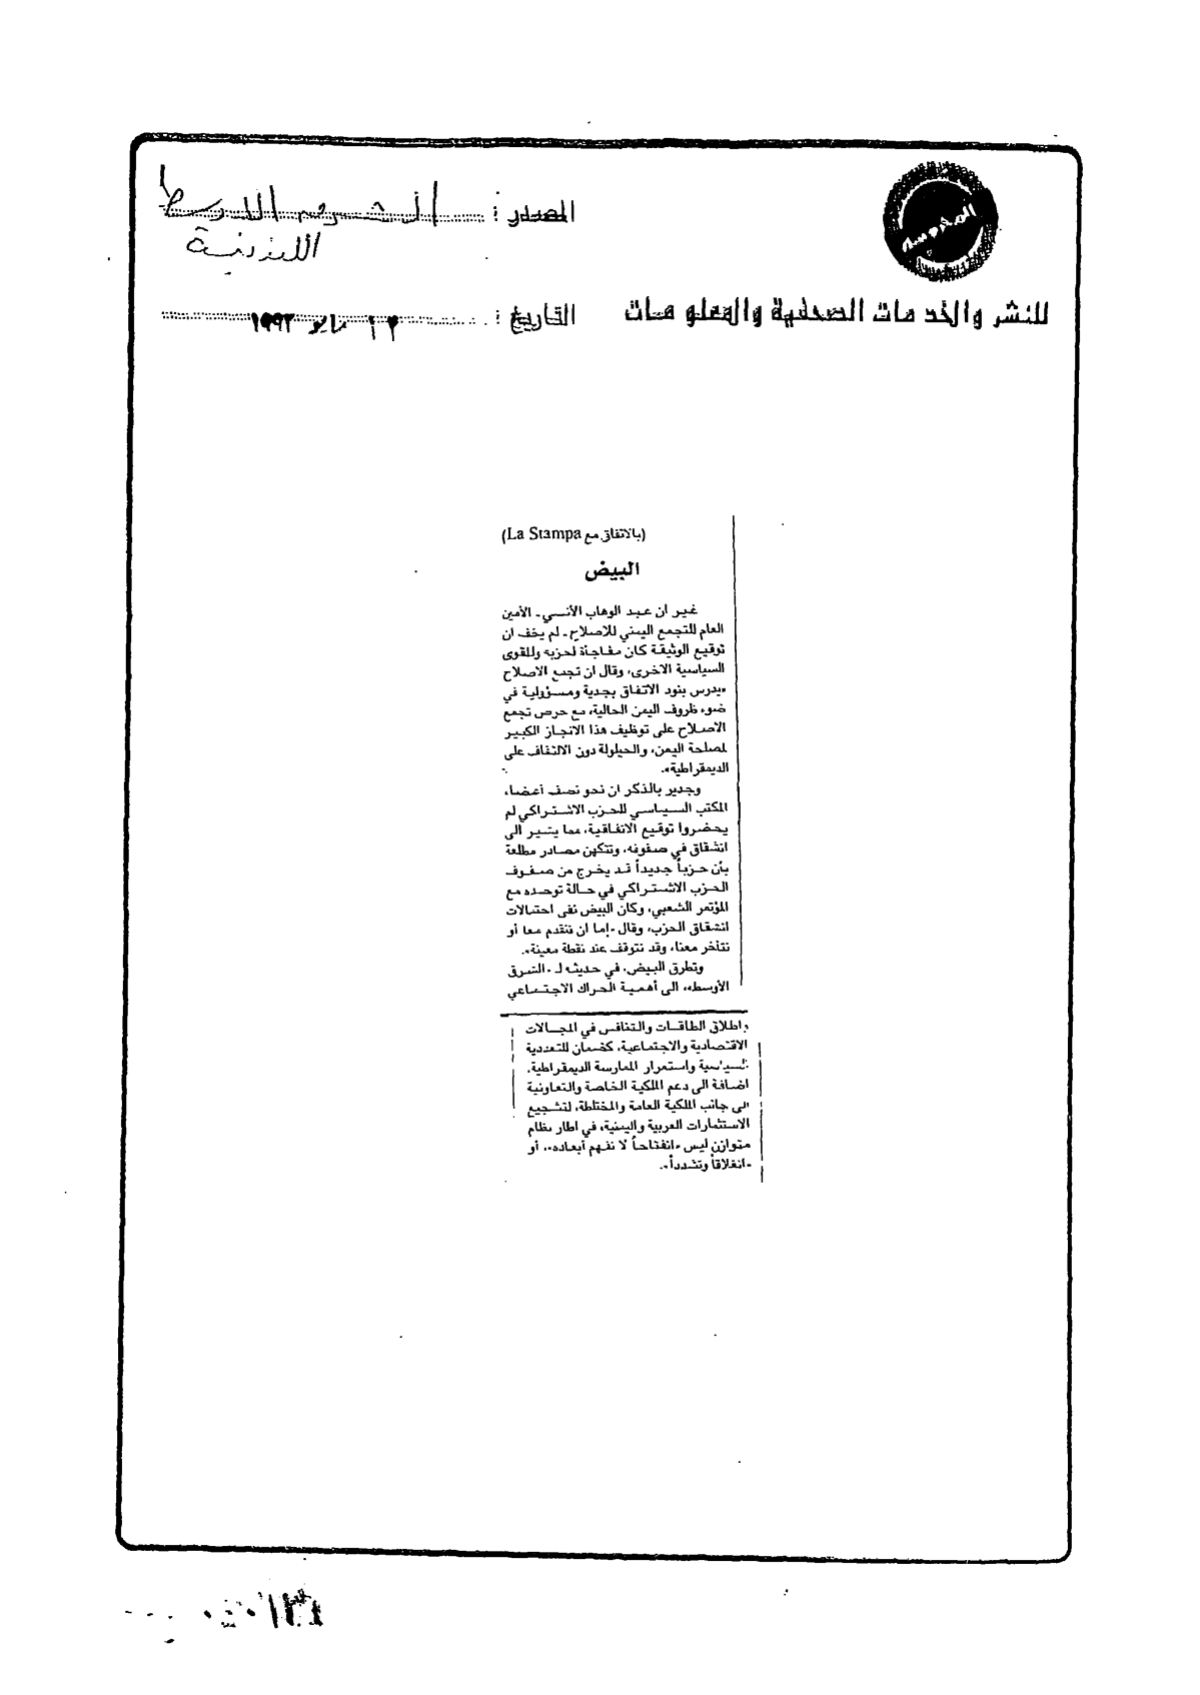 المصدر : الشرق الاوسط
اللندنية
للنشر والخدمات الصحفية والمعلومات
التاريخ : ١٢ مايو ١٩٩٣
(بالاتفاق مع La Stampa)
البيض
غير ان عبد الوهاب الأنسي - الأمين
العام للتجمع اليمني للاصلاح - لم يخف ان
توقيع الوثيقة كان مفاجأة لحزبه وللقوى
السياسية الاخرى، وقال ان تجمع الاصلاح
«يدرس بنود الاتفاق بجدية ومسؤولية في
ضوء ظروف اليمن الحالية، مع حرص تجمع
الاصلاح على توظيف هذا الانجاز الكبير
لمصلحة اليمن، والحيلولة دون الالتفاف على
الديمقراطية».
وجدير بالذكر ان نحو نصف أعضاء
المكتب السياسي للحزب الاشتراكي لم
يحضروا توقيع الاتفاقية، مما يشير الى
انشقاق في صفوفه، وتتكهن مصادر مطلعة
بأن حزباً جديداً قد يخرج من صفوف
الحزب الاشتراكي في حالة توحده مع
المؤتمر الشعبي، وكان البيض نفى احتمالات
انشقاق الحزب، وقال «إما ان نتقدم معا أو
نتأخر معنا، وقد نتوقف عند نقطة معينة».
وتطرق البيض، في حديثه لـ «الشرق
الأوسط»، الى أهمية الحراك الاجتماعي
واطلاق الطاقات والتنافس في المجالات
الاقتصادية والاجتماعية، كضمان للتعددية
السياسية واستمرار الممارسة الديمقراطية،
اضافة الى دعم الملكية الخاصة والتعاونية
الى جانب الملكية العامة والمختلطة، لتشجيع
الاستثمارات العربية واليمنية، في اطار نظام
متوازن ليس «انفتاحاً لا نفهم أبعاده»، أو
«انغلاقاً وتشدداً».